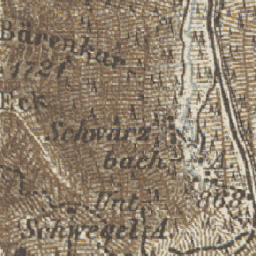 Bärenkar
1721
Eck
Schwarz
bach
A
Unt.
868
Schwegel A.